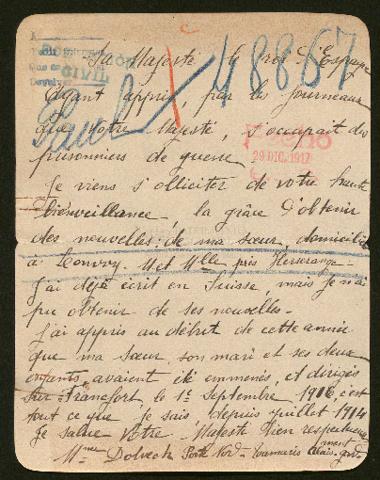 CIVIL
48867
Sa Majesté le Roi d'Espagne
Ayant appris, par les journeaux
que Votre Majesté, s'occupait des
prisonniers de guerre
29 DIC. 1917
Je viens s'olliciter de votre haute
bienveillance, la grâce d'obtenir
des nouvelles de ma sœur, domiciliée
à Convoy. Met Mlle près Herserange
J'ai déjà écrit en Suisse, mais je n'ai
pu obtenir de ses nouvelles.
J'ai appris au début de cette année
que ma sœur, son mari et ses deux
enfants, avaient été emmenés, et dirigés
sur Francfort, le 1er Septembre 1916, c'est
tout ce que je sais depuis juillet 1914
Je salue Votre Majesté bien respectueusement
Mme Dolveck Porte Nord - Tamaris Alais. Gard.